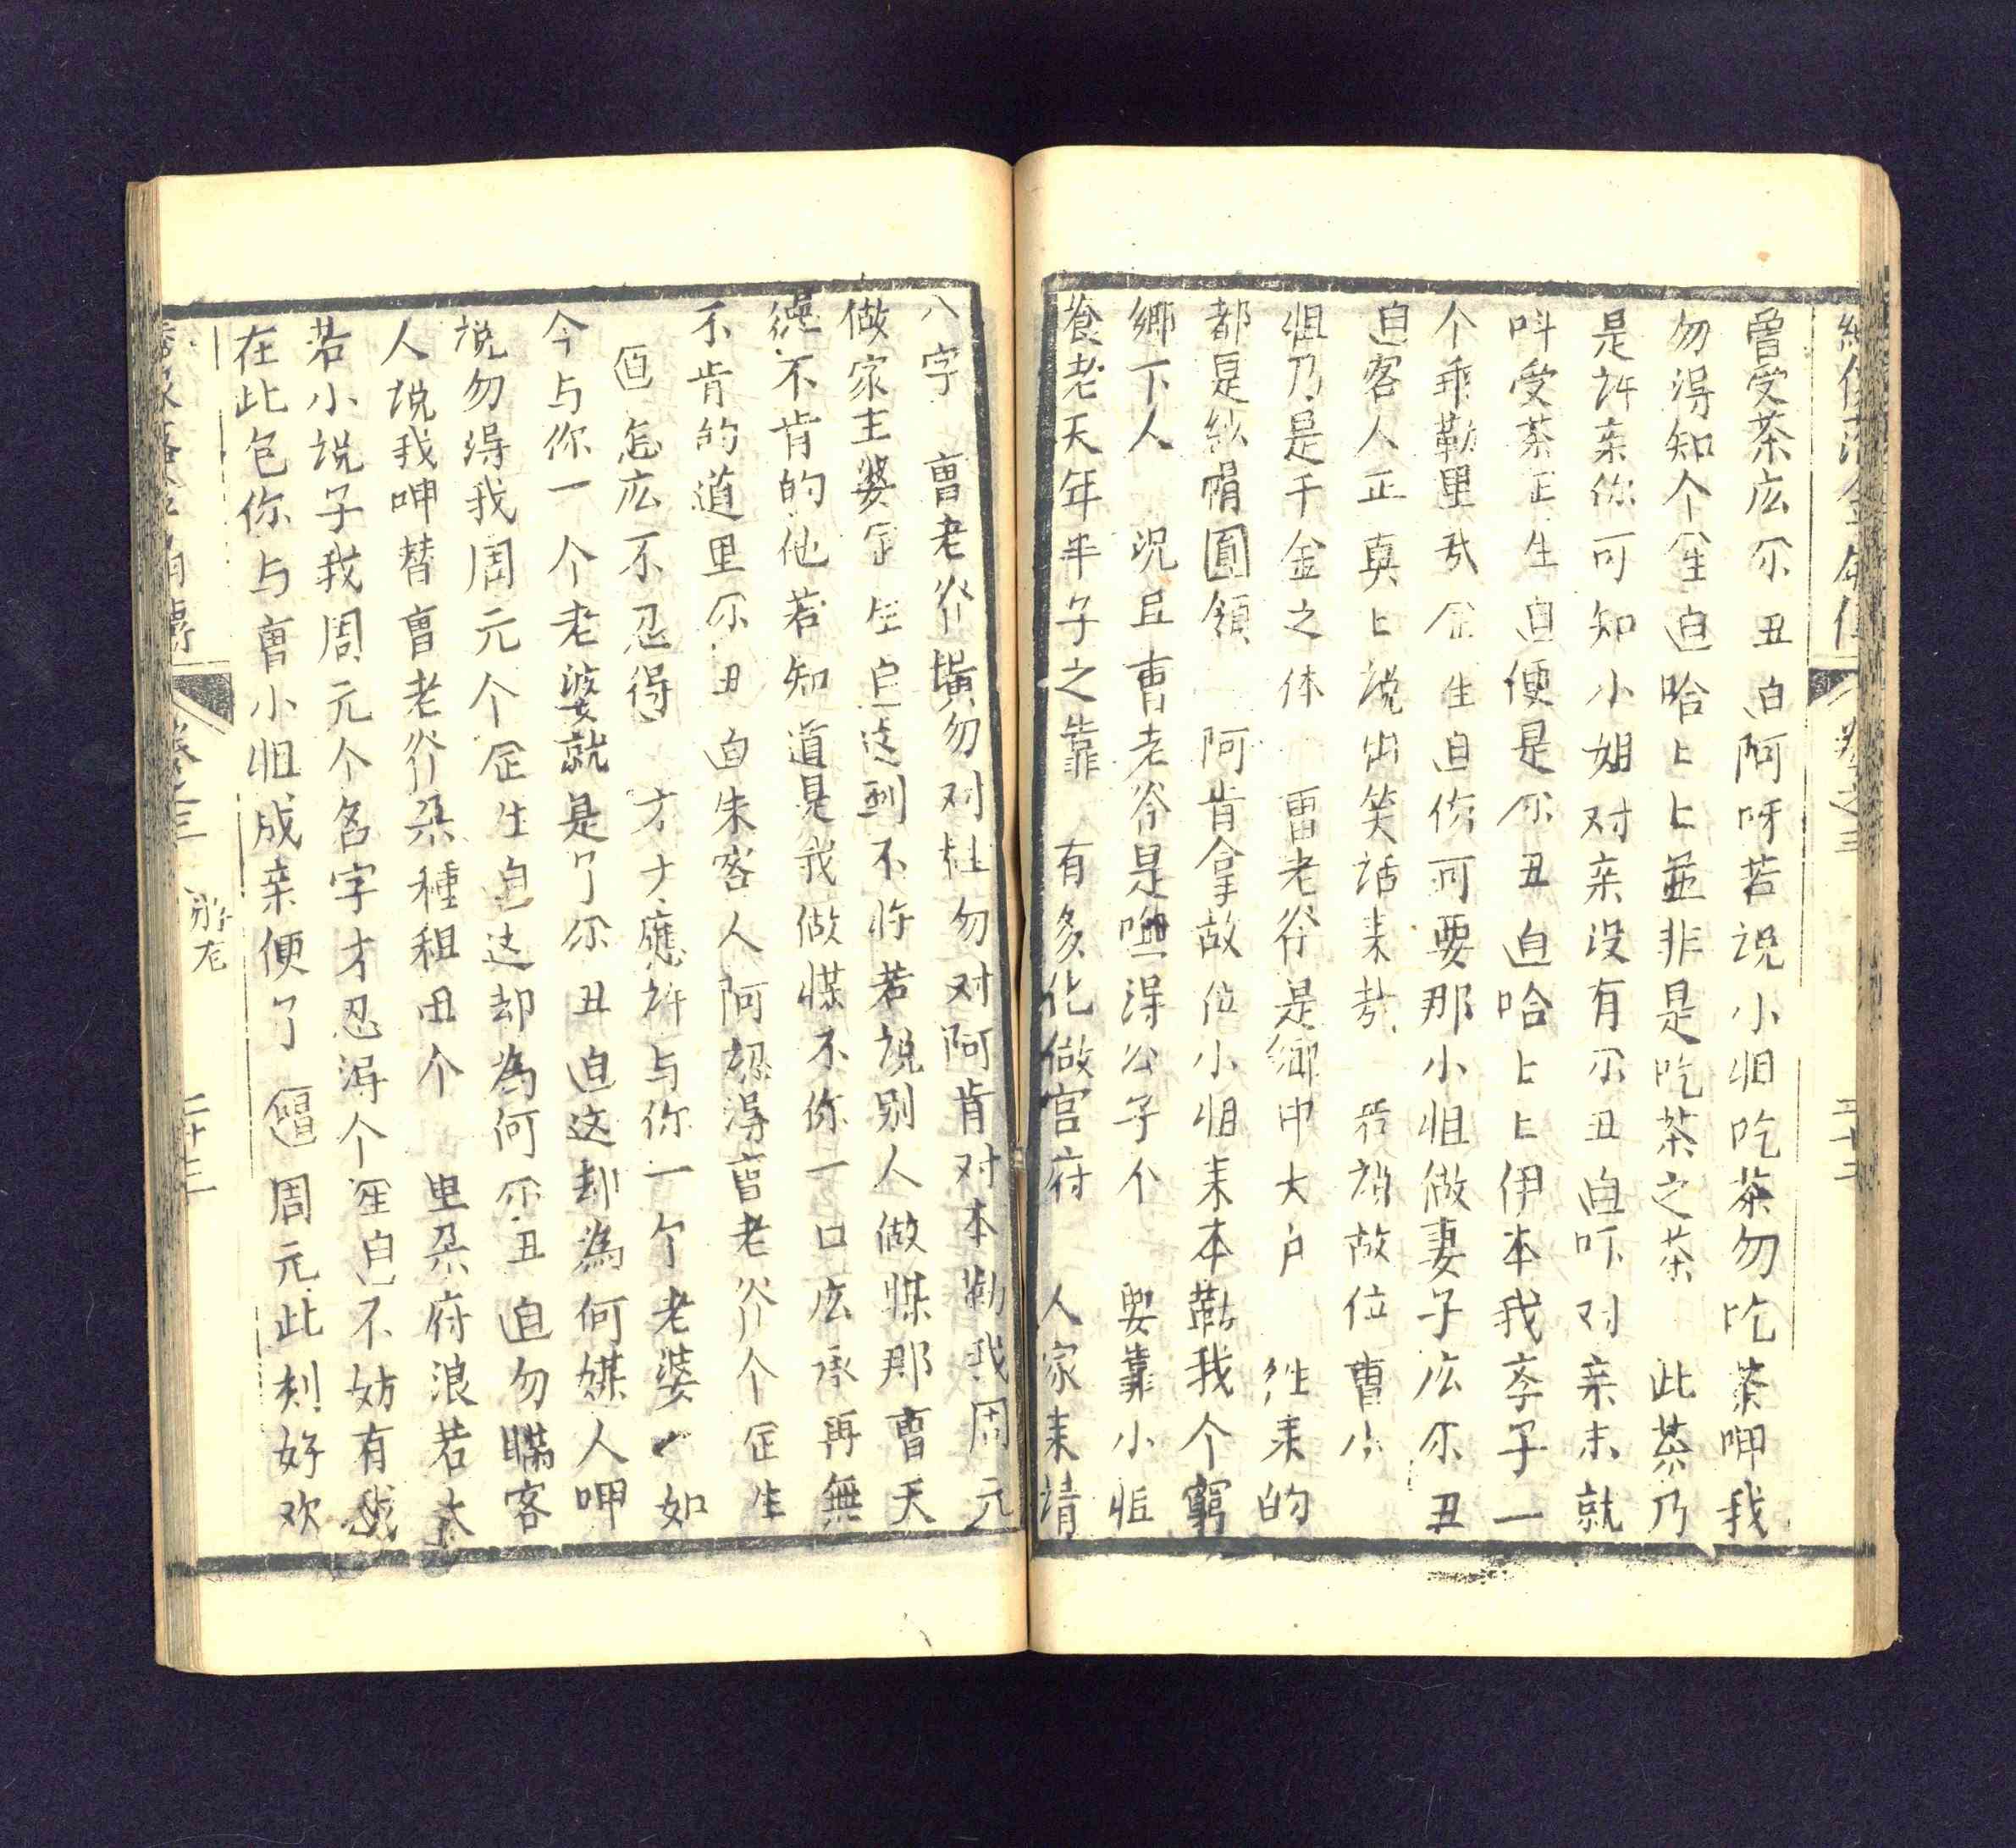 曾受茶広尔丑白阿呀若说小姐吃茶勿吃茶呷我
勿得知个生白哈上上並非是吃茶之茶 此茶乃
是許亲你可知小姐对亲没有尔丑白吓对亲末就
呌受茶正生白便是尔丑白哈上上伊本我李子一
个乖勒里哉生白你可要那小姐做妻子広尔丑
白客人正真上说出笑话来哉 若福故位曹小
姐乃是千金之体 曹老爷是鄉申大户 往来的
都是紗帽圓領 阿肯拿故位小姐来本勒我个窮
鄉下人 况且曹老爷是嘸得公子个 要靠小姐
養老天年半子之靠 有多化做官府 人家来請
八字 曹老爷橫勿对杜勿对阿肯对本勒我周元
做家主婆尔生白这到不許若说别人做媒那曹天
徳不肯的他若知道是我做媒不你一口広承再無
不肯的道里尔丑白朱客人阿認得曹老爷个正生
白怎広不忍得 才才應許与你一个老婆 如
今与你一个老婆就是了尔丑白这却為何媒人呷
说勿得我周元个正生白这却為何尔丑白勿瞞客
人说我呷替曹老爷朵種租田个 里朵府浪若太
若小说子我周元个名字才忍得个生白不妨有我
在此包你与曹小姐成亲便了 周元此刻好欢
卷之三
二十三